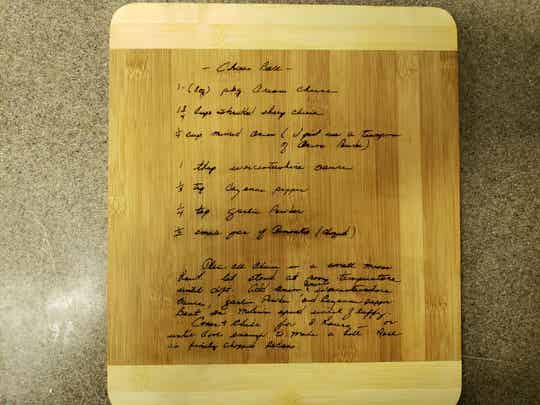 - Cheese Ball -
1 - (lg) pkg Cream Cheese
1 3/4 cups shredded sharp cheese
1/4 cup minced Onion ( I just use a teaspoon
of Onion Powder)
1 tbsp worcestershire sauce
tsp Cayenne pepper
1/4 tsp garlic Powder
small jar of Pimentos (diced)
Place all cheese in a small mixer
bowl let stand at room temperature
until soft. Add onion, worcestershire
sauce, garlic Powder and Cayenne pepper
Beat on medium speed until fluffy.
Cover & Chill for 8 hours - or
until firm enough to make a ball Roll
in finely chopped Pecans